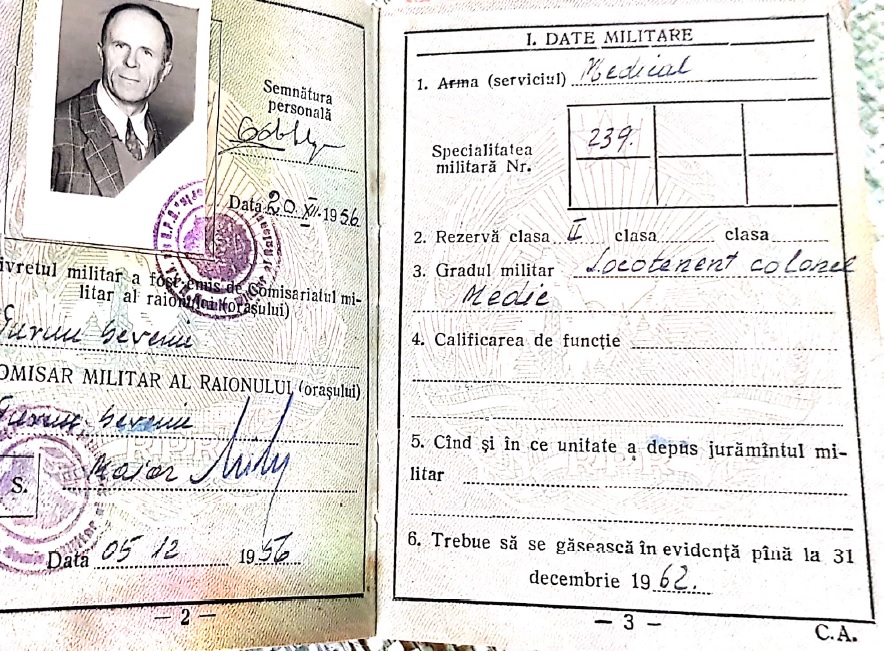 Semnătura
personală
Data 20.XI.1956
ivretul militar a fost emis de Comisariatul mi-
litar al raionului (orașului)
Turnu Severin
OMISAR MILITAR AL RAIONULUI (orașului)
Turnu Severin
S.
Maior
Data 05 12 1956
— 2 —
I. DATE MILITARE
1. Arma (serviciul) Medical
Specialitatea
militară Nr.
239.
2. Rezervă clasa II clasa clasa
3. Gradul militar Locotenent colonel
Medic
4. Calificarea de funcție
5. Cînd și în ce unitate a depus jurămîntul mi-
litar
RPR
RPR
6. Trebue să se găsească în evidență pînă la 31
decembrie 1962.
— 3 —
C.A.